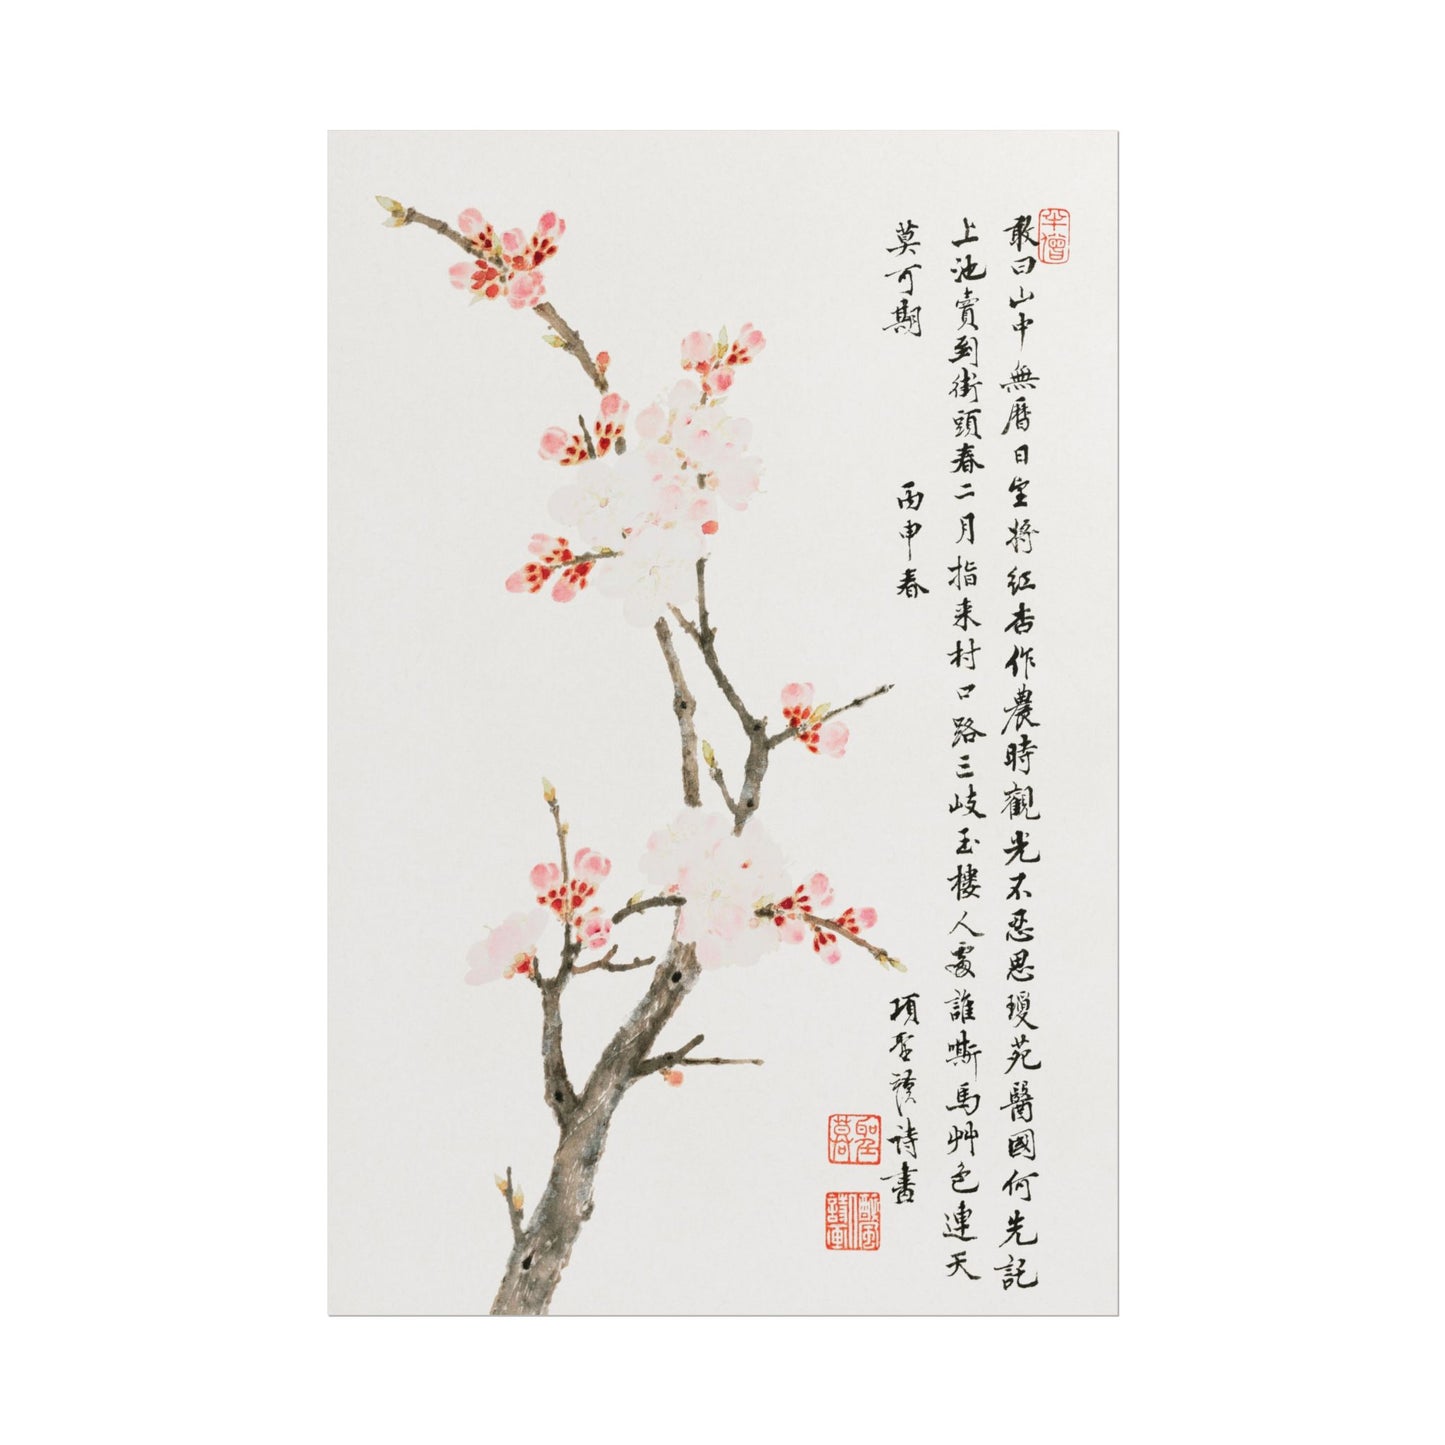 敢曰山中無曆日坐將紅杏作農時觀光不忍思瓊苑醫國何先託
上池賣到街頭春二月指来村口路三岐玉樓人處誰嘶馬艸色連天
莫可期
丙申春
項聖謨詩畫